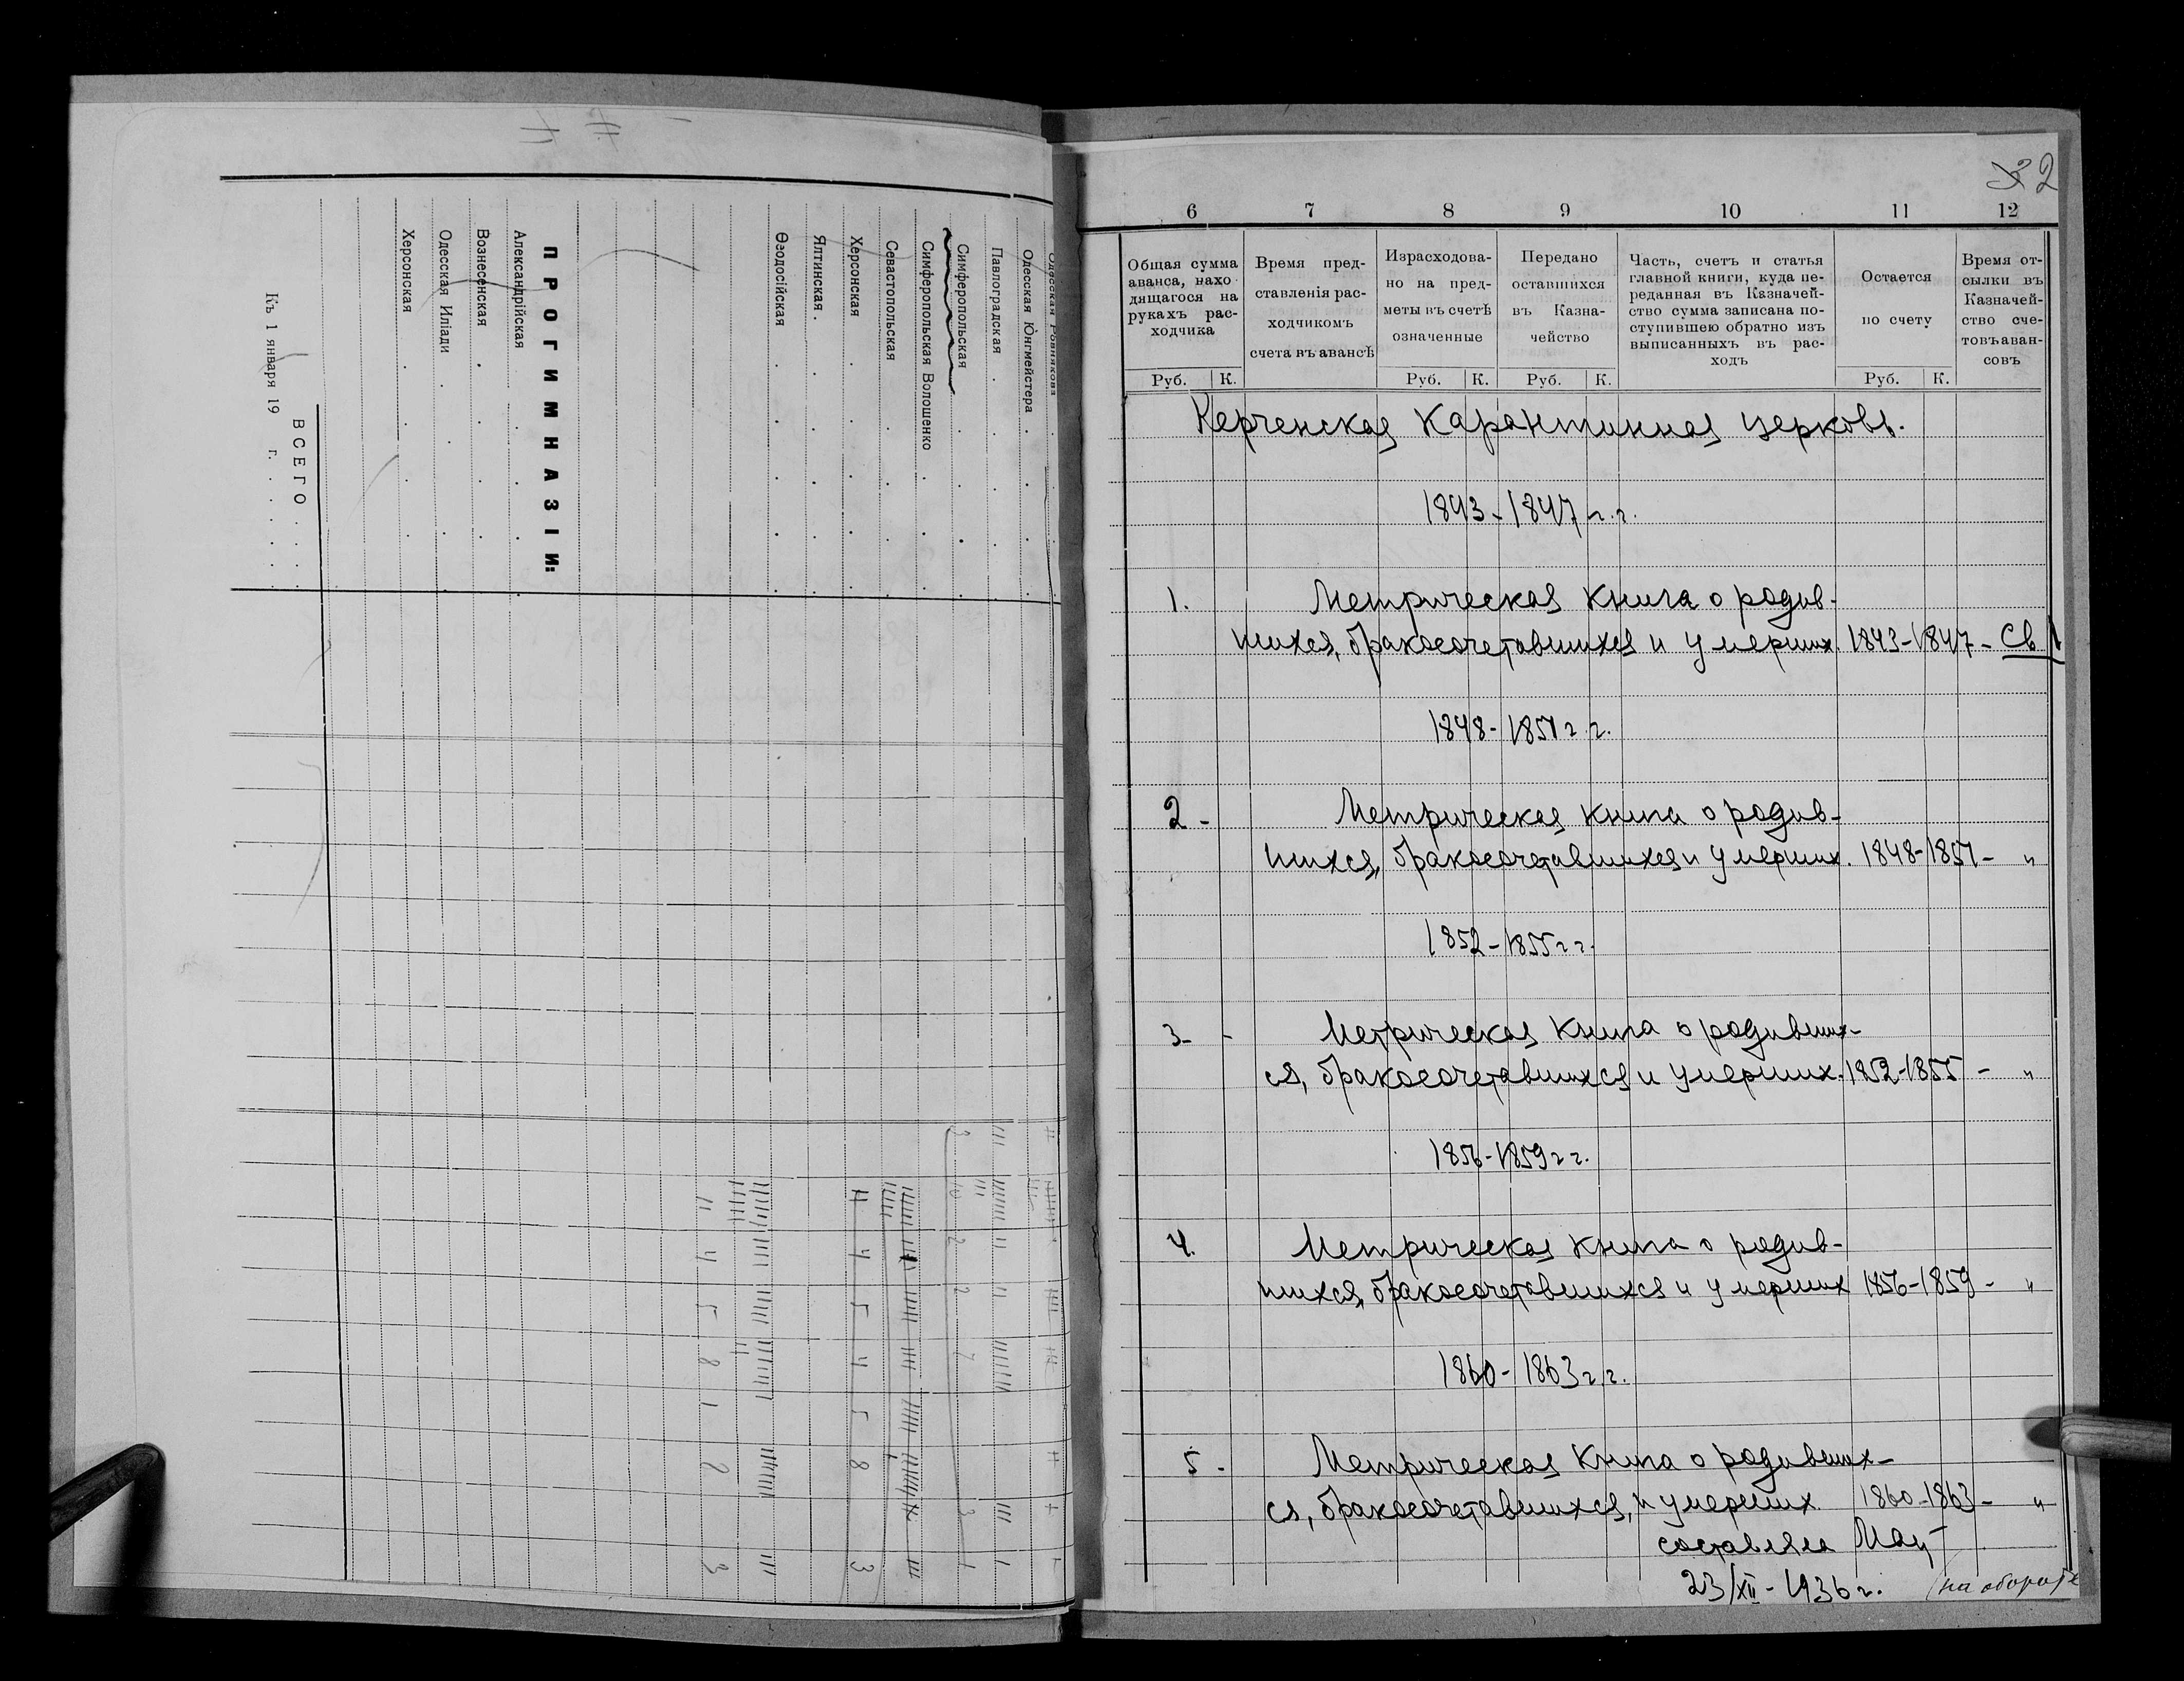 Одесская Юнгмейстера
Павлоградская
Симферопольская
Симферопольская Волошенко
Севастопольская
Херсонская
Ялтинская
Ѳеодосійская
ПРОГИМНАЗІИ:
Александрійская
Вознесенская
Одесская Иліади
Херсонская
ВСЕГО
Къ 1 января 19 г.
11 4 5 8 1 2 3
4 4 5 4 5 8 3
2
6 7 8 9 10 11 12
Общая сумма
аванса, нахо
дящагося на
рукахъ рас-
ходчика
Руб. К.
Время пред-
ставленія рас-
ходчикомъ
счета въ авансѣ
Израсходова-
но на пред-
меты въ счетѣ
означенные
Руб. К.
Передано
оставшихся
въ Казна-
чейство
Руб. К.
Часть, счетъ и статья
главной книги, куда пе-
реданная въ Казначей-
ство сумма записана по-
ступившею обратно изъ
выписанныхъ въ рас-
ходъ
Остается
по счету
Руб. К.
Время от-
сылки въ
Казначей-
ство сче-
товъ аван-
совъ
Керченская Карантинная церковь.
1843-1847 г.г.
1. Метрическая книга о родив-
шихся, бракосочетавшихся и умерших. 1843-1847 - Св 1
1848-1851 г.г.
2 - Метрическая книга о родив-
шихся, бракосочетавшихся и умерших. 1848-1851 - "
1852-1855 г г.
3 - Метрическая книга о родивших-
ся, бракосочетавшихся и умерших. 1852-1855 - "
1856-1859 г г.
4. Метрическая книга о родив-
шихся, бракосочетавшихся и умерших 1856-1859 - "
1860-1863 г.г.
5 - Метрическая книга о родивших-
ся, бракосочетавшихся, и умерших 1860-1863 - "
составляла
23/XII-1936 г. (на обороте